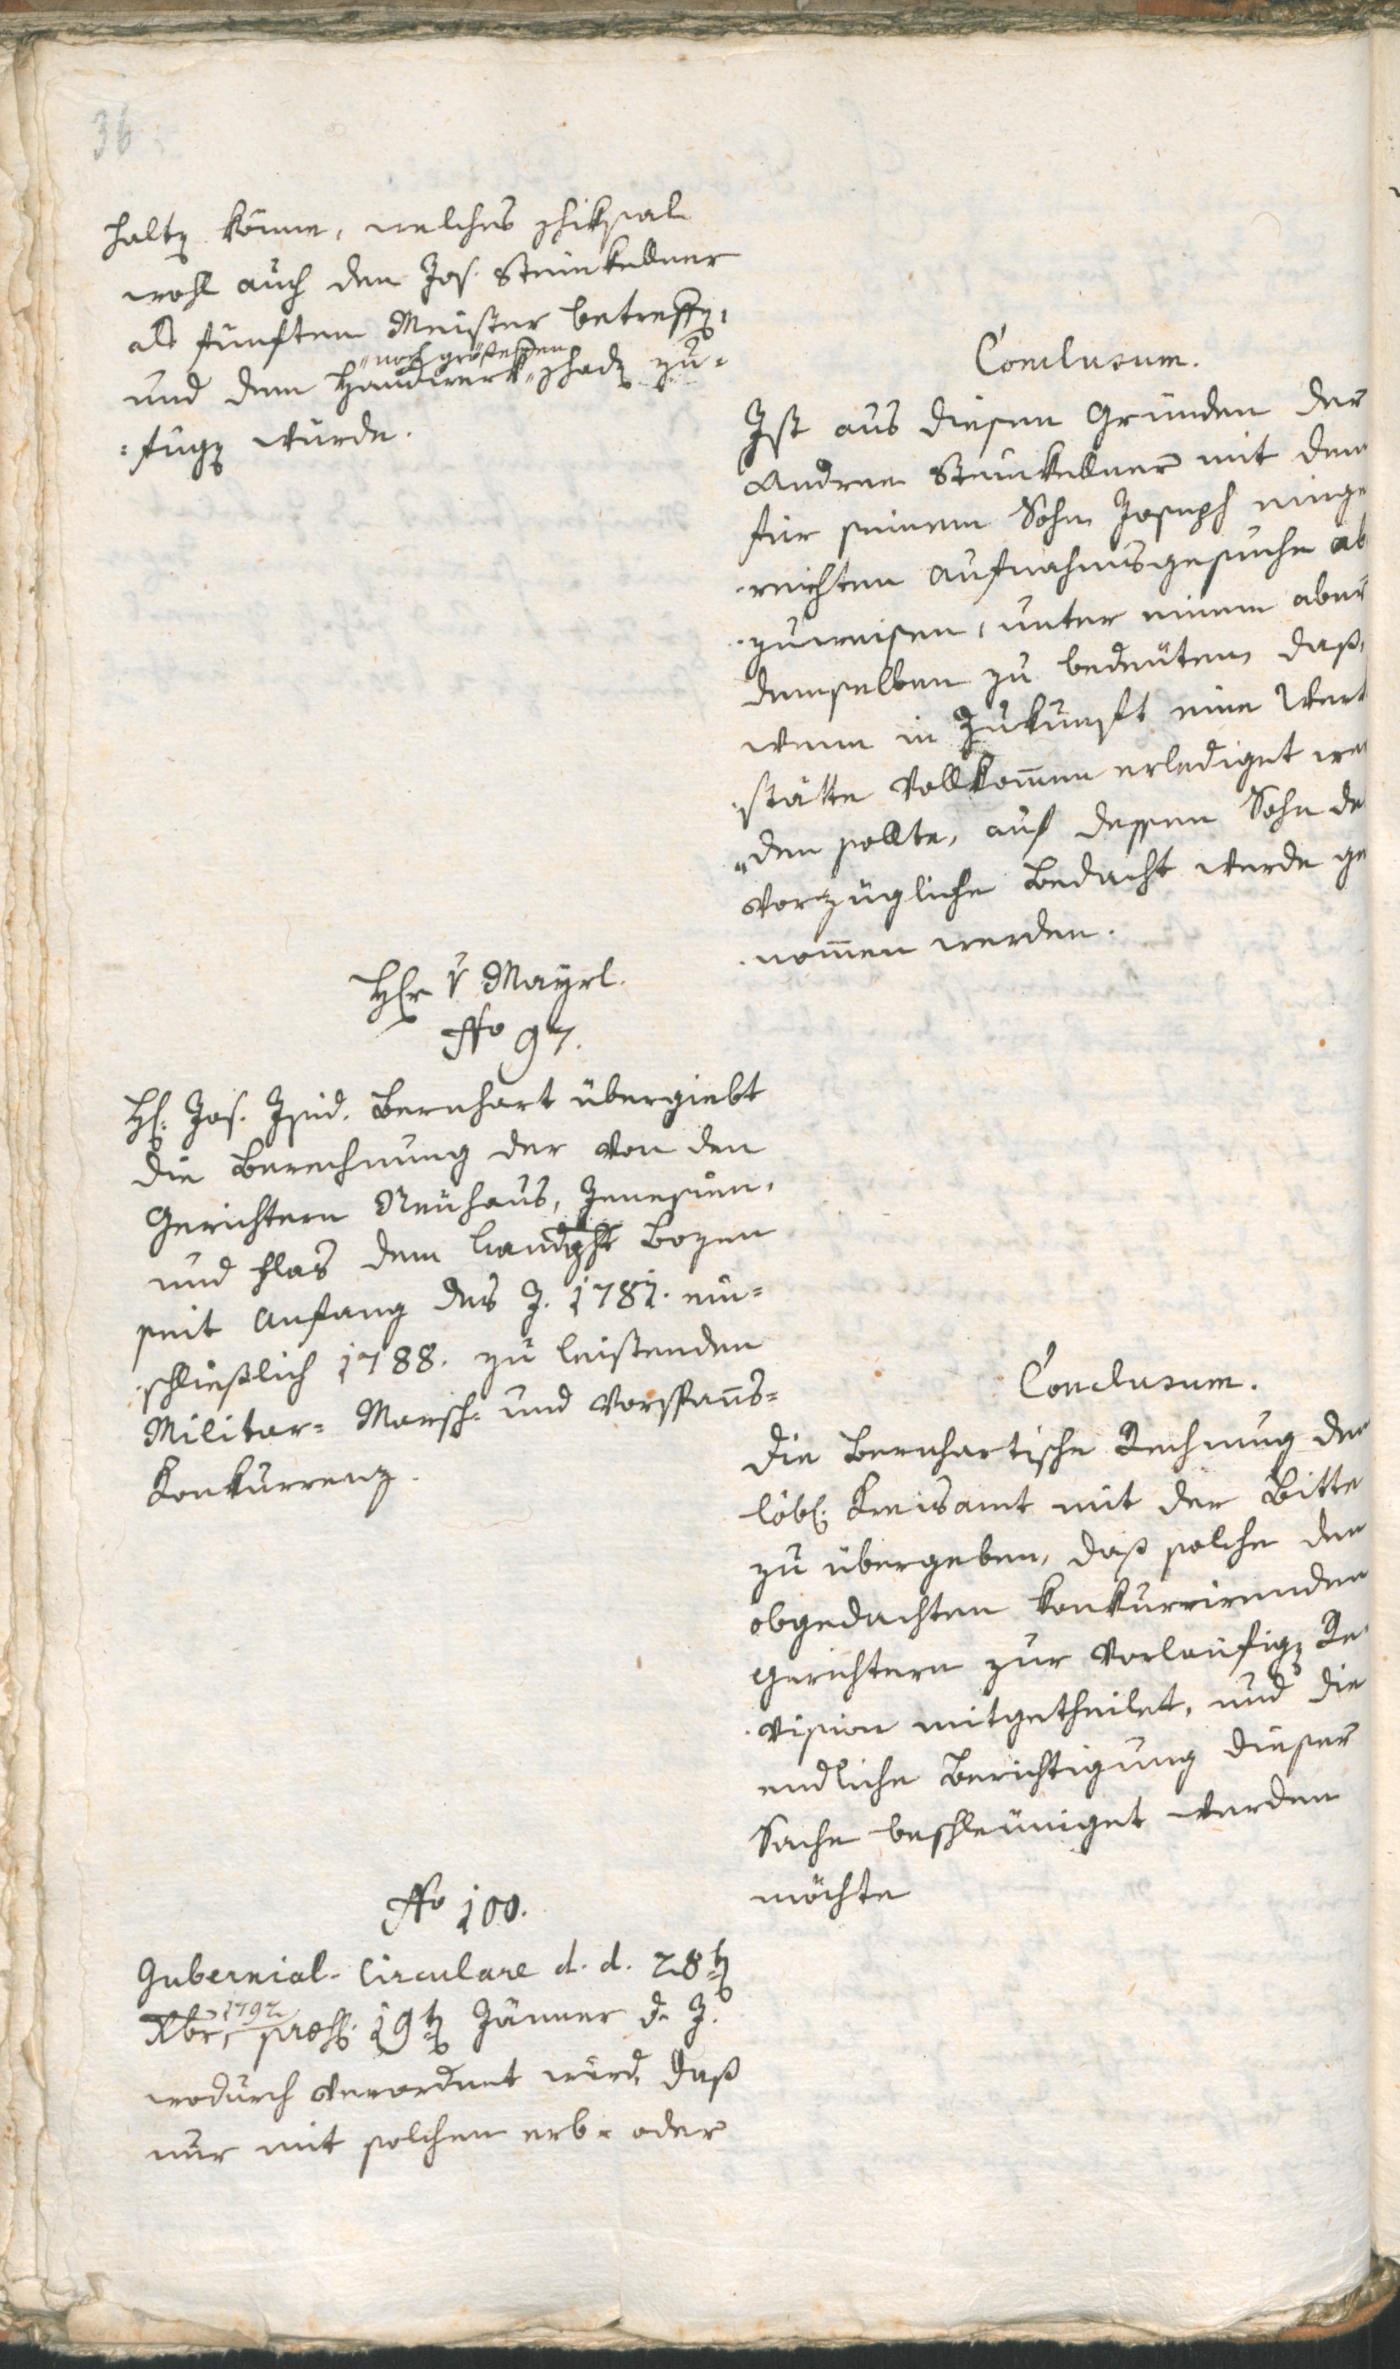 36
halten könne, welches Schiksal
wohl auch den Jos. Steinkellner
als fünften Meister betreffen,
und dem Handwerk "noch größeren" Schaden zu-
-fügen würde.
Conclusum.
Ist aus diesen Gründen der
Andree Steinkellner mit dem
für seinem Sohn Joseph einge
-reichten Aufnahmsgesuche ab
-zuweisen, unter einem aber
demselben zu bedeuten, daß,
wenn in Zukunft eine Werk
-stätte vollkommen erlediget wer
-den sollte, auf dessen Sohn de
vorzügliche Bedacht werde ge
-nommen werden.
Hr v Mayrl.
No 97.
H. Jos. Isid. Bernhart übergiebt
die Berechnung der von den
Gerichtern Neuhaus, Jenesien,
und Flas dem Landght Bozen
seit Anfang des J. 1781. ein-
-schließlich 1788. zu leistenden
Militar- Marsch- und Vorspanns-
Konkurrenz.
Conclusum.
Die Bernhartische Rechnung dem
löbl. Kreisamt mit der Bitte
zu übergeben, daß solche den
obgedachten konkurrirenden
Gerichtern zur vorläufigen Re
-vision mitgetheilet, und die
endliche Berichtigung dieser
Sache beschleuniget werden
möchte
No 100.
Gubernial-Circulare d. d. 28ten
Xbr, 1792 praes. 19ten Jänner d. J.
wodurch verordnet wird, daß
nur mit solchen erb- oder